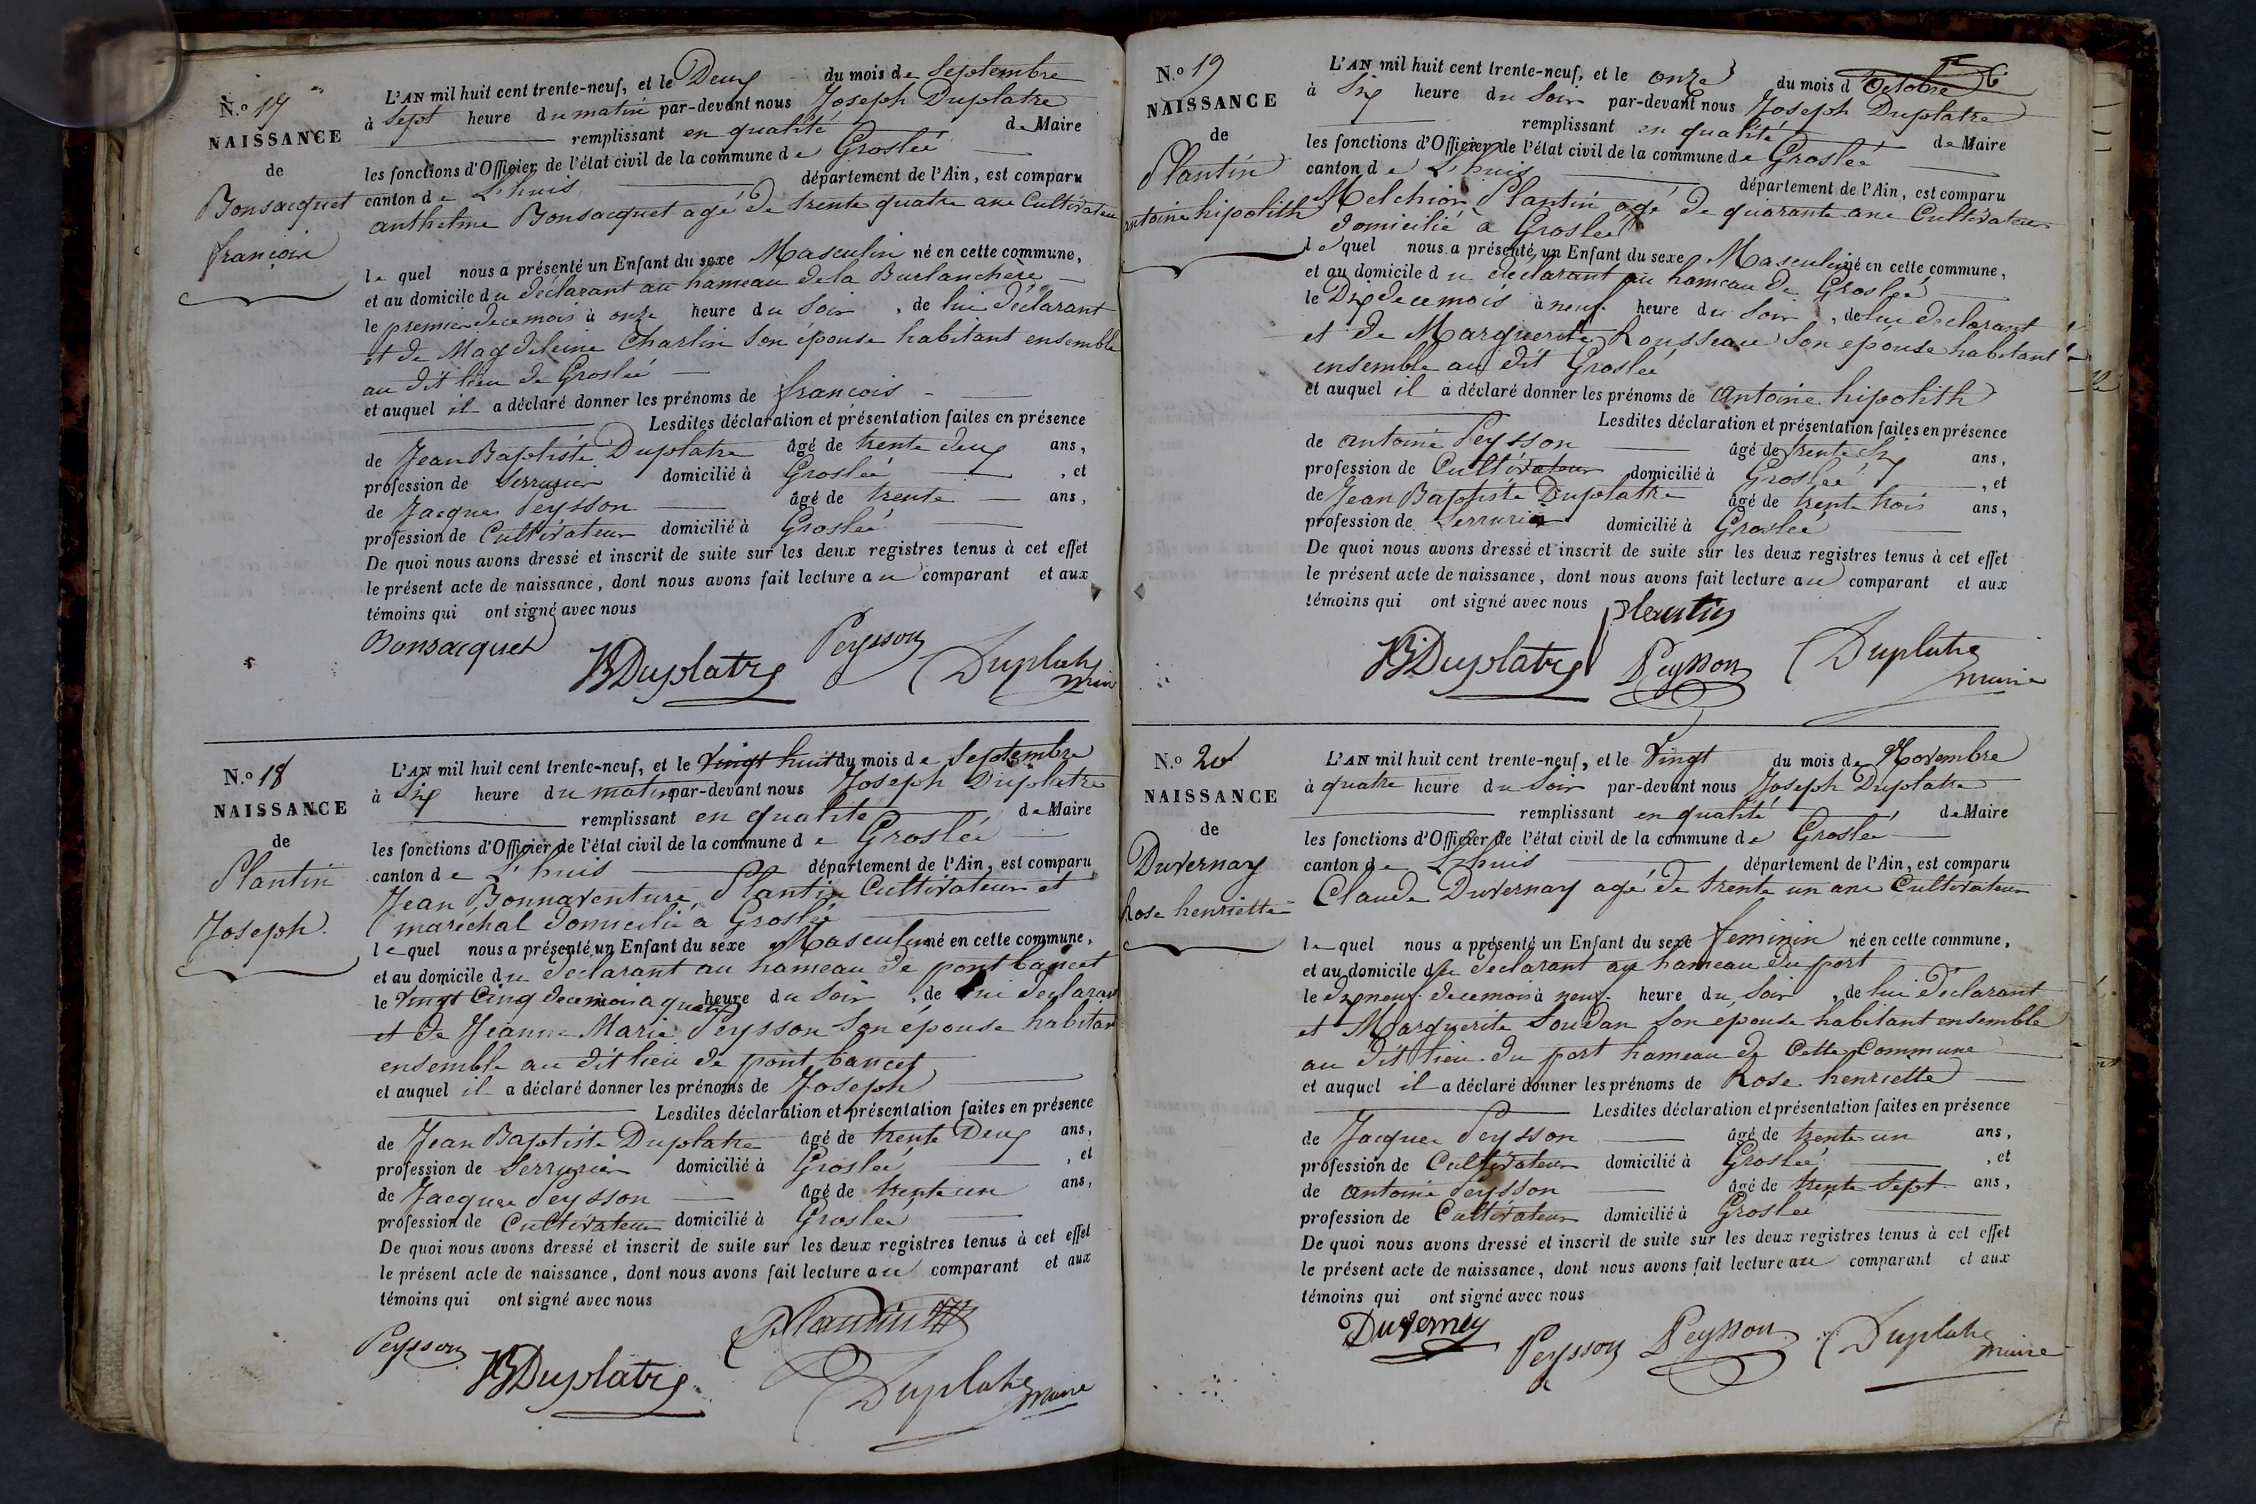 N.° 17
NAISSANCE
de
Bonsacquet
françois
L'AN mil huit cent trente-neuf, et le Deux du mois de Septembre
à Sept heure du matin par-devant nous Joseph Duplatre
remplissant en qualité de Maire
les fonctions d'Officier de l'état civil de la commune de Groslée
canton de L'huis département de l'Ain, est comparu
anthelme Bonsacquet agé de trente quatre ans Cultivateur
lequel nous a présenté un Enfant du sexe Masculin né en cette commune,
et au domicile du déclarant au hameau de la Burlanchere
le premier de ce mois à onze heure du Soir, de lui déclarant
et de Magdeleine Charlin Son épouse habitant ensemble
au dit lieu de Groslée
et auquel il a déclaré donner les prénoms de françois
Lesdites déclaration et présentation faites en présence
de Jean Baptiste Duplatre âgé de trente deux ans,
profession de Serrurier domicilié à Groslée, et
de Jacques Peysson âgé de trente ans,
profession de Cultivateur domicilié à Groslée
De quoi nous avons dressé et inscrit de suite sur les deux registres tenus à cet effet
le présent acte de naissance, dont nous avons fait lecture au comparant et aux
témoins qui ont signé avec nous
Bonsacquet JB Duplatre Peysson Duplatre
maire
N.° 18
NAISSANCE
de
Plantin
Joseph
L'AN mil huit cent trente-neuf, et le Vingt huit du mois de Septembre
à Six heure du matin par-devant nous Joseph Duplatre
remplissant en qualité de Maire
les fonctions d'Officier de l'état civil de la commune de Groslée
canton de L'huis département de l'Ain, est comparu
Jean Bonnaventure Plantin Cultivateur et
maréchal domicilié a Groslée
lequel nous a présenté un Enfant du sexe Masculin né en cette commune,
et au domicile du déclarant au hameau de pont bancet
le Vingt Cinq de ce mois a quatre heure du Soir, de lui déclarant
et de Jeanne Marie Peysson Son épouse habitant
ensemble au dit lieu de pont bancet
et auquel il a déclaré donner les prénoms de Joseph
Lesdites déclaration et présentation faites en présence
de Jean Baptiste Duplatre âgé de trente Deux ans,
profession de Serrurier domicilié à Groslée, et
de Jacques Peysson âgé de trente un ans,
profession de Cultivateur domicilié à Groslée
De quoi nous avons dressé et inscrit de suite sur les deux registres tenus à cet effet
le présent acte de naissance, dont nous avons fait lecture au comparant et aux
témoins qui ont signé avec nous
Plantin
Peysson JB Duplatre Duplatre
maire
N.° 19
NAISSANCE
de
Plantin
antoine hipolith
L'AN mil huit cent trente-neuf, et le onze du mois d'Octobre
à Six heure du Soir par-devant nous Joseph Duplatre
remplissant en qualité de Maire
les fonctions d'Officier de l'état civil de la commune de Groslée
canton de L'huis département de l'Ain, est comparu
Melchior Plantin agé de quarante ans Cultivateur
domicilié a Groslée
lequel nous a présenté un Enfant du sexe Masculin né en cette commune,
et au domicile du déclarant au hameau de Groslée
le Dix de ce mois à neuf heure du Soir, de lui déclarant
et de Marguerite Rousseau Son épouse habitant
ensemble au dit Groslée
et auquel il a déclaré donner les prénoms de antoine hipolith
Lesdites déclaration et présentation faites en présence
de antoine Peysson âgé de trente Six ans,
profession de Cultivateur domicilié à Groslée, et
de Jean Baptiste Duplatre âgé de trente trois ans,
profession de Serrurier domicilié à Groslée
De quoi nous avons dressé et inscrit de suite sur les deux registres tenus à cet effet
le présent acte de naissance, dont nous avons fait lecture au comparant et aux
témoins qui ont signé avec nous Plantin
JB Duplatre Peysson Duplatre
maire
N.° 20
NAISSANCE
de
Duvernay
Rose henriette
L'AN mil huit cent trente-neuf, et le Vingt du mois de Novembre
à quatre heure du Soir par-devant nous Joseph Duplatre
remplissant en qualité de Maire
les fonctions d'Officier de l'état civil de la commune de Groslée
canton de L'huis département de l'Ain, est comparu
Claude Duvernay agé de trente un ans Cultivateur
lequel nous a présenté un Enfant du sexe feminin né en cette commune,
et au domicile du déclarant au hameau du port
le dix neuf de ce mois à neuf heure du Soir, de lui déclarant
et Marguerite Soudan Son épouse habitant ensemble
au dit lieu du port hameau de Cette Commune
et auquel il a déclaré donner les prénoms de Rose henriette
Lesdites déclaration et présentation faites en présence
de Jacques Peysson âgé de trente un ans,
profession de Cultivateur domicilié à Groslée, et
de antoine Peysson âgé de trente Sept ans,
profession de Cultivateur domicilié à Groslée
De quoi nous avons dressé et inscrit de suite sur les deux registres tenus à cet effet
le présent acte de naissance, dont nous avons fait lecture au comparant et aux
témoins qui ont signé avec nous
Duverney Peysson Peysson Duplatre
maire